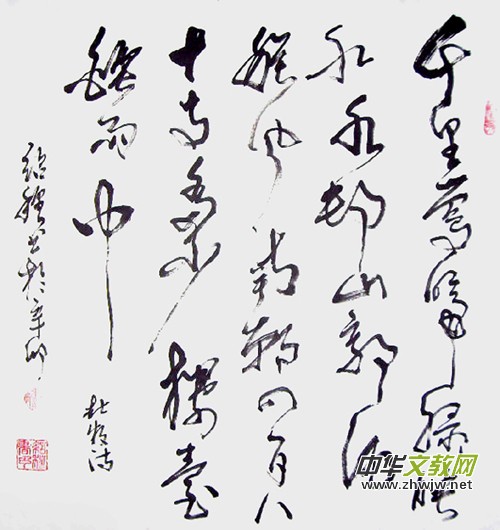 千里鶯啼綠映
紅水村山郭酒
旗風南朝四百八
十寺多少樓臺
煙雨中
杜牧詩
书於辛卯
中华文教网
www.zhwjw.net